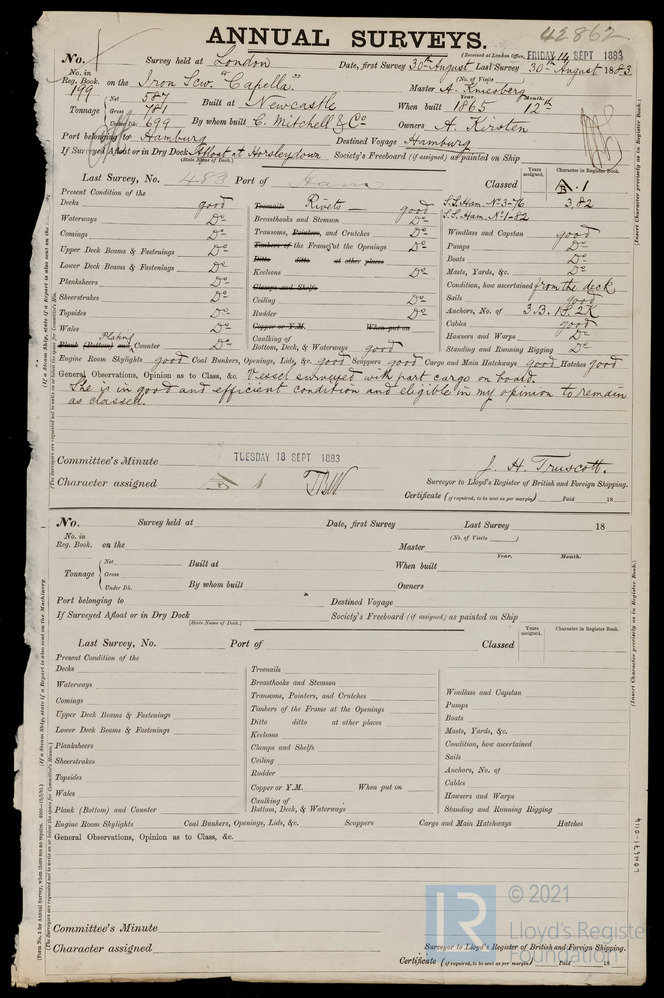 42862
ANNUAL SURVEYS.
(Received at London Office, FRIDAY 14 SEPT 1883
No. Survey held at London Date, first Survey 30th August Last Survey 30th August 1883.
(No. of Visits)
No. in Reg. Book. 199 on the Iron Scw. "Capella." Master A. Kniesberg
Year. Month.
Tonnage Net 587 Gross 781 Under Dk. 699 Built at Newcastle When built 1865 12th
By whom built C. Mitchell & Co Owners A. Kirsten
Port belonging to Hamburg Destined Voyage Hamburg
If Surveyed Afloat or in Dry Dock Afloat at Horsleydown Society's Freeboard (if assigned) as painted on Ship
(State Name of Dock.)
Years assigned. Character in Register Book.
Last Survey, No. 483 Port of Ham Classed 1
S.S. Ham. No 3-76 3,82
S.S. Ham. No 1-82
Present Condition of the
Decks good
Waterways Do
Comings Do
Upper Deck Beams & Fastenings Do
Lower Deck Beams & Fastenings Do
Planksheers Do
Sheerstrakes Do
Topsides Do
Wales Do
Plank (Bottom) and Counter Do
Plating
Treenails Rivets good
Breasthooks and Stemson Do
Transoms, Pointers, and Crutches Do
Timbers of the Frame at the Openings Do
Ditto ditto at other places
Keelsons Do
Clamps and Shelfs
Ceiling Do
Rudder Do
Copper or Y.M. When put on
Caulking of
Bottom, Deck, & Waterways good
Windlass and Capstan good
Pumps Do
Boats Do
Masts, Yards, &c. Do
Condition, how ascertained from the deck
Sails good
Anchors, No. of 3 B. 1 S. 2 K
Cables good
Hawsers and Warps Do
Standing and Running Rigging Do
Engine Room Skylights good Coal Bunkers, Openings, Lids, &c. good Scuppers good Cargo and Main Hatchways good Hatches good
General Observations, Opinion as to Class, &c. Vessel surveyed with part cargo on board.
She is in good and efficient condition and eligible in my opinion to remain
as classed.
Committee's Minute TUESDAY 18 SEPT 1883
J. H. Truscott.
Character assigned
Surveyor to Lloyd's Register of British and Foreign Shipping.
Certificate (if required, to be sent as per margin) Paid 18
No. Survey held at Date, first Survey Last Survey 18
(No. of Visits)
No. in Reg. Book. on the Master
Year. Month.
Tonnage Net Gross Under Dk. Built at When built
By whom built Owners
Port belonging to Destined Voyage
If Surveyed Afloat or in Dry Dock Society's Freeboard (if assigned) as painted on Ship
(State Name of Dock.)
Years assigned. Character in Register Book.
Last Survey, No. Port of Classed
Present Condition of the
Decks
Waterways
Comings
Upper Deck Beams & Fastenings
Lower Deck Beams & Fastenings
Planksheers
Sheerstrakes
Topsides
Wales
Plank (Bottom) and Counter
Treenails
Breasthooks and Stemson
Transoms, Pointers, and Crutches
Timbers of the Frame at the Openings
Ditto ditto at other places
Keelsons
Clamps and Shelfs
Ceiling
Rudder
Copper or Y.M. When put on
Caulking of
Bottom, Deck, & Waterways
Windlass and Capstan
Pumps
Boats
Masts, Yards, &c.
Condition, how ascertained
Sails
Anchors, No. of
Cables
Hawsers and Warps
Standing and Running Rigging
Engine Room Skylights Coal Bunkers, Openings, Lids, &c. Scuppers Cargo and Main Hatchways Hatches
General Observations, Opinion as to Class, &c.
Committee's Minute
Character assigned
Surveyor to Lloyd's Register of British and Foreign Shipping.
Certificate (if required, to be sent as per margin) Paid 18
(Insert Character precisely as in Register Book.)
(Insert Character precisely as in Register Book.)
LON471-0114
© 2021
Lloyd's Register
Foundation